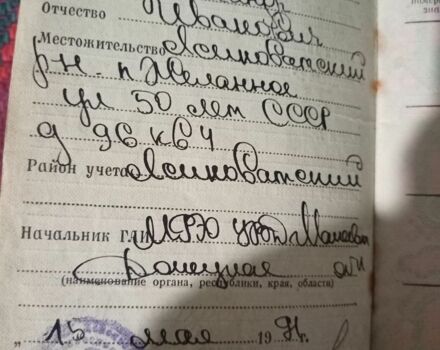 Отчество Иванович
Местожительство Ясиноватский
р-н. п Желанное
ул 50 лет СССР
д 96 кв 4
Район учета Ясиноватский
Начальник ГАИ МРЭО
Донецкая обл
(наименование органа, республики, края, области)
„ 15 мая 1991 г.